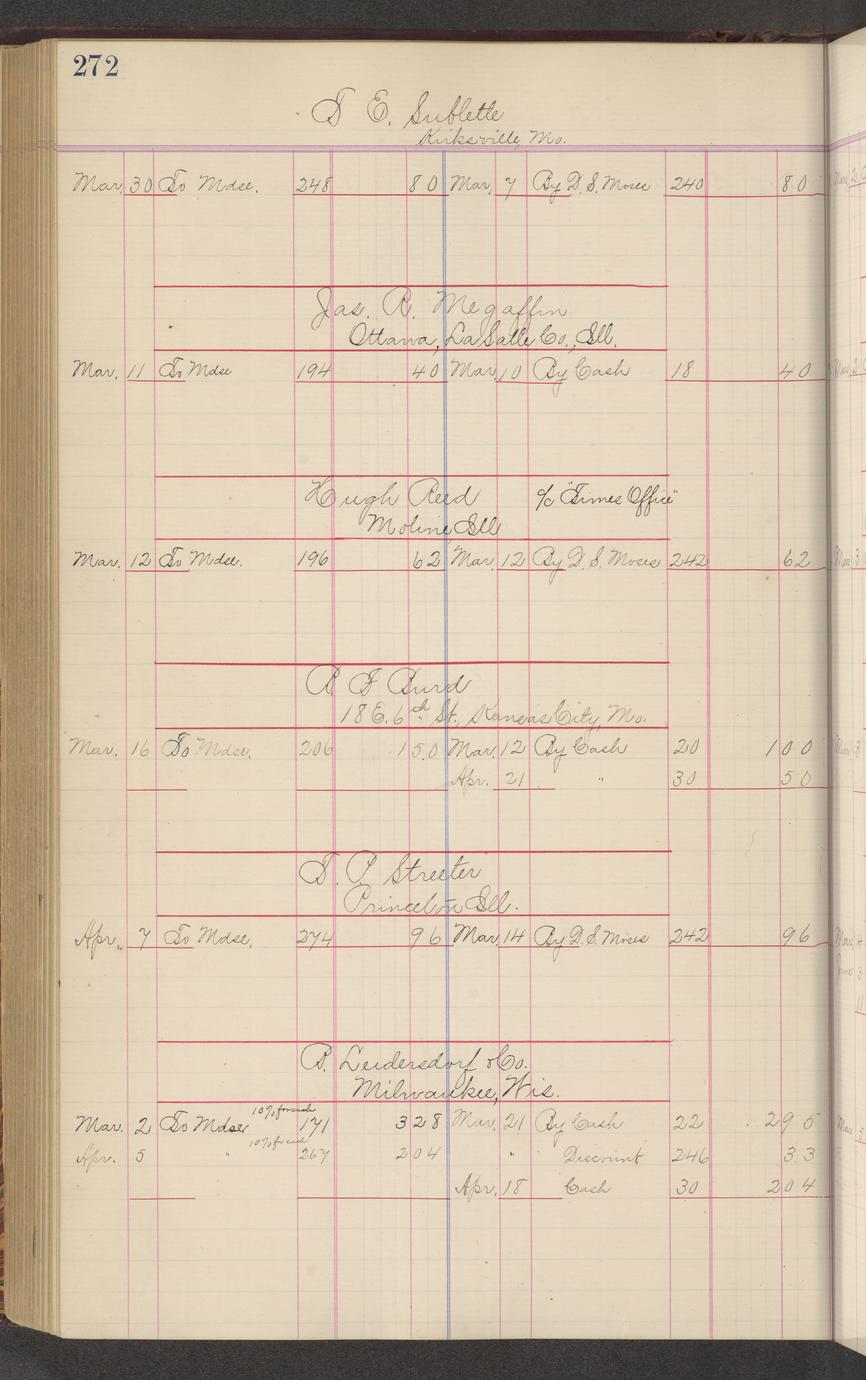 272
T. E. Sublette
Kirksville, Mo.
Mar. 30 To Mdse. 248 80 Mar. 7 By D. S. Moses 240 80
Jas. R. Megaffin
Ottawa, La Salle Co., Ill.
Mar. 11 To Mdse 194 40 Mar. 10 By Cash 18 40
Hugh Reed % "Times Office"
Moline Ill
Mar. 12 To Mdse. 196 62 Mar. 12 By D. S. Moses 242 62
R. F. Burd
18 E. 6th St., Kansas City, Mo.
Mar. 16 To Mdse. 206 150 Mar. 12 By Cash 20 100
Apr. 21 " 30 50
T. P. Streeter
Princeton Ill.
Apr. 7 To Mdse. 274 96 Mar. 14 By D. S. Moses 242 96
B. Leidersdorf & Co.
Milwaukee, Wis.
Mar. 2 To Mdse 10% for cash 171 328 Mar. 21 By Cash 22 295
Apr. 5 " 10% for cash 267 204 " Discount 246 33
Apr. 18 Cash 30 204